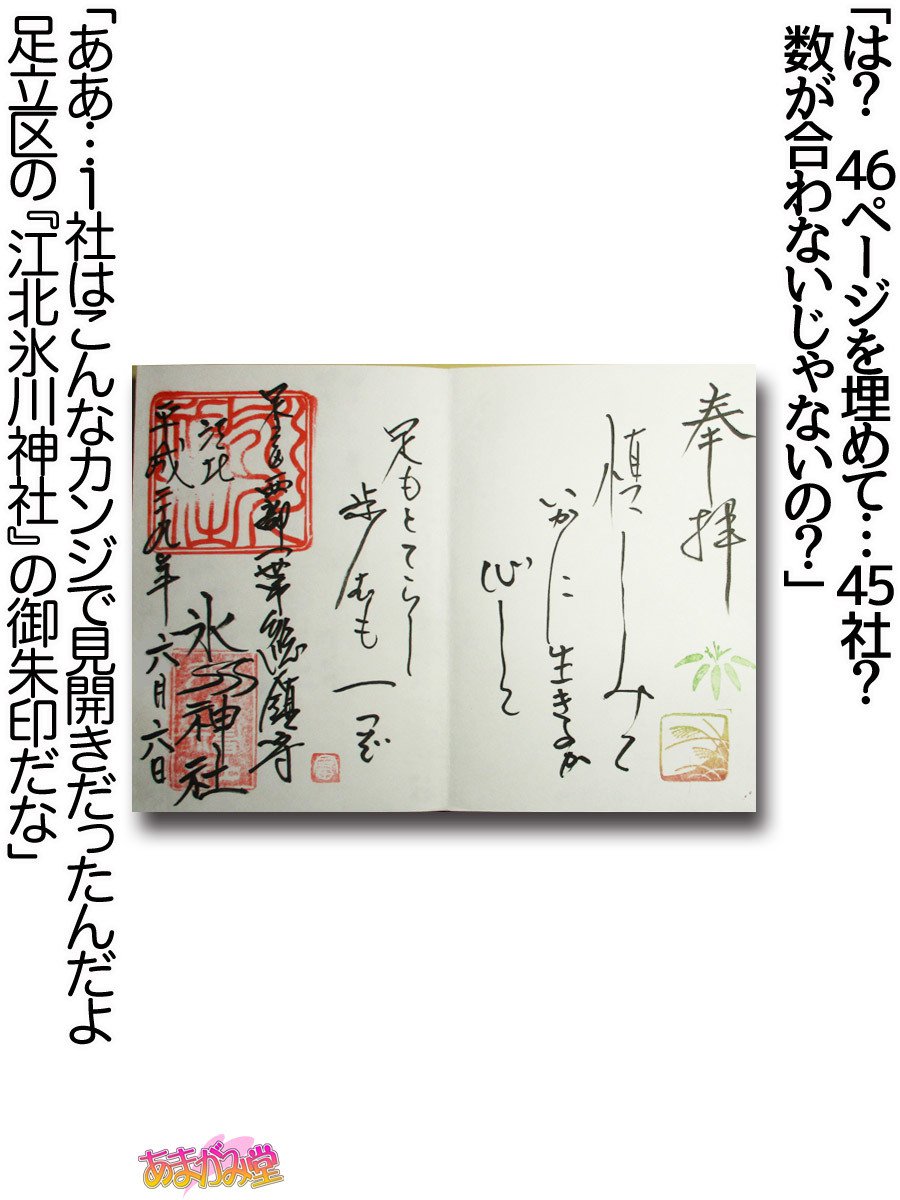 「は？ 46ページを埋めて…45社？
数が合わないじゃないの？」
奉拝
慎しみて
いかに生きるか
心して
足もとてらし
歩むも一つ
江北
氷川神社
平成二十九年六月六日
「ああ…1社はこんなカンジで見開きだったんだよ
足立区の『江北氷川神社』の御朱印だな」
あまがみ堂